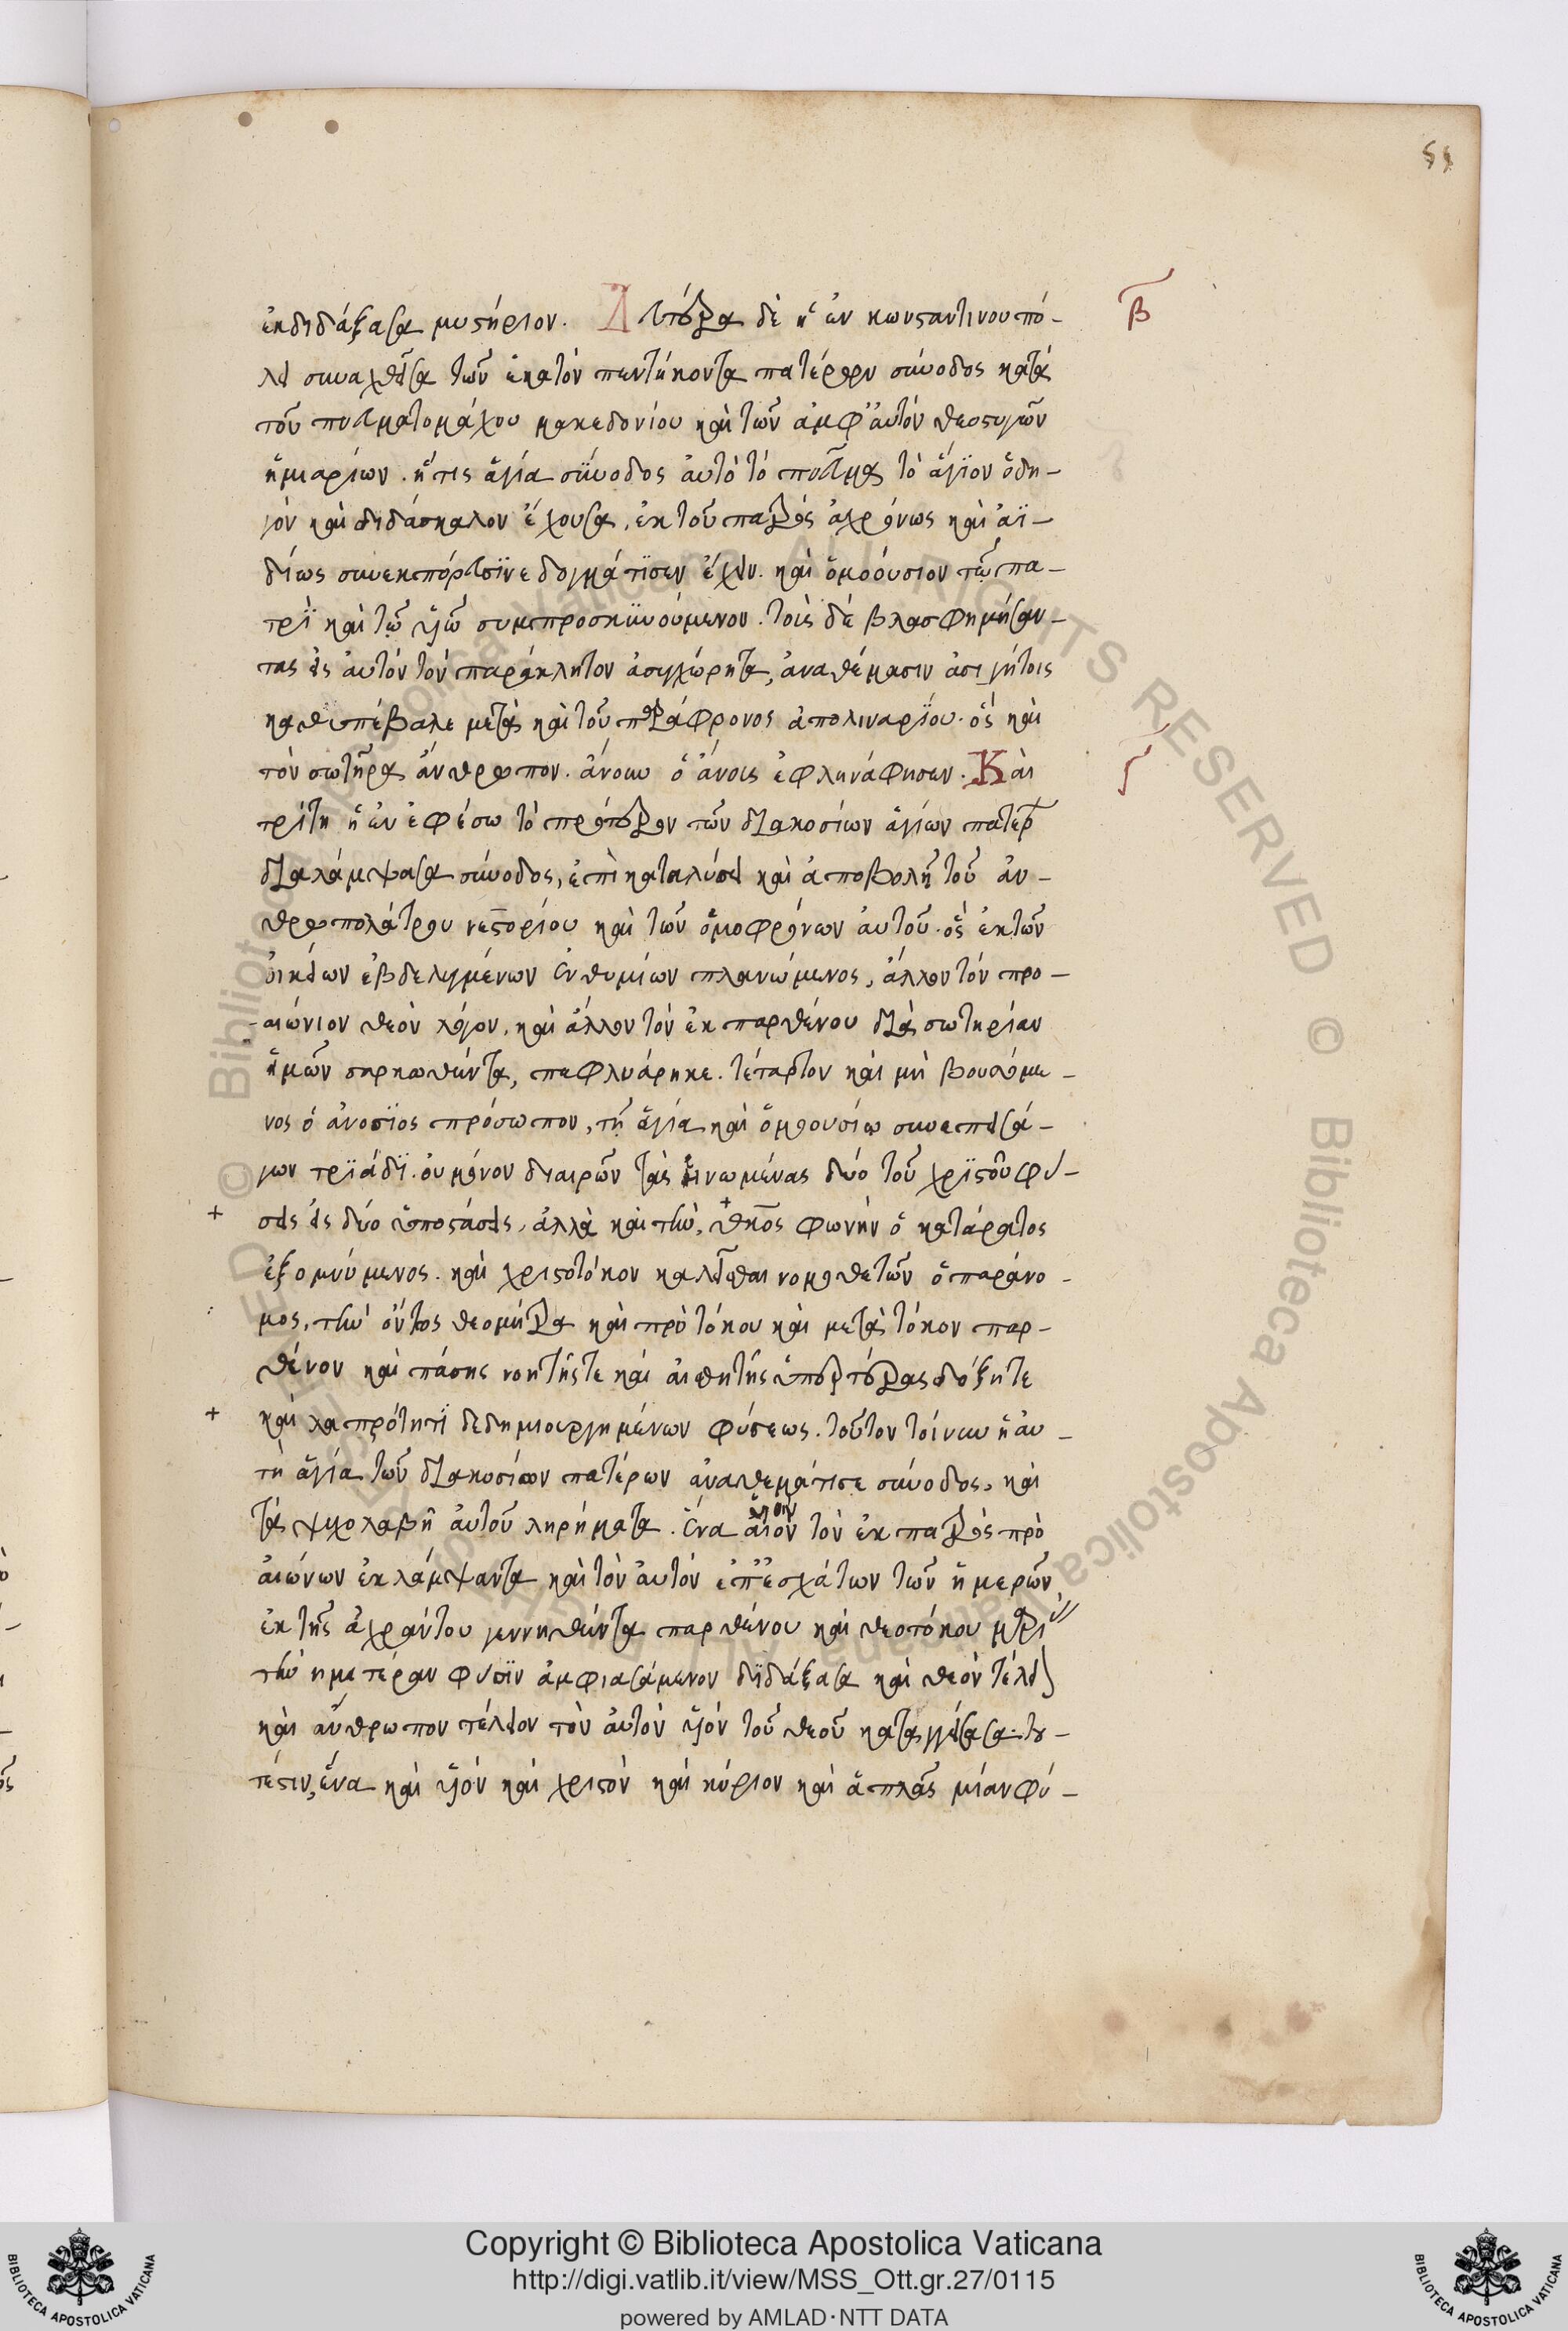 55
ἐκδιδάξασα μυστήριον. Δευτέρα δὲ ἡ ἐν κωνσταντινουπό-
β
λει συναχθεῖσα τῶν ἑκατὸν πεντήκοντα πατέρων σύνοδος κατὰ
τοῦ πνευματομάχου μακεδονίου καὶ τῶν ἀμφ' ἀυτὸν θεοστυγῶν
ἡμιαρίων. ἥτις ἁγία σύνοδος ἀυτὸ τὸ πνεῦμα τὸ ἅγϊον ὁδη-
γὸν καὶ διδάσκαλον ἔχουσα, ἐκ τοῦ πατρὸς ἀχρόνως καὶ ἀϊ-
δίως συνεκπόρευσϊν ἐδογμάτϊσεν ἔχειν. καὶ ὁμοούσιον τῶ πα-
τρῒ καὶ τῶ ὑϊῶ συμπροσκϋνούμενον. τοὺς δὲ βλασφημήσαν-
τας εἰς ἀυτὸν τὸν παράκλητον ἀσυγχώρητα, ἀναθέμασιν ἀσιγήτοις
καθυπέβαλε μετὰ καὶ τοῦ ἀπολιναρΐου. ὃς καὶ
τὸν σωτῆρα ἄνθρωπον. ἄνουν ὁ ἄνους ἐφληνάφησεν. Κὰι
τρίτη ἡ ἐν ἐφέσω τὸ πρότερον τῶν διακοσίων ἁγίων πατέρ
διαλάμψασα σύνοδος, ἐπὶ καταλύσει καὶ ἀποβολῆ τοῦ ἀν-
θρωπολάτρου νεστορίου καὶ τῶν ὁμοφρόνων ἀυτοῦ. ὃς ἐκ τῶν
ὀικείων ἐβδελυγμένων ἐνθυμίων πλανώμενος, ἄλλον τὸν προ-
αιώνιον θεὸν λόγον, καὶ ἄλλον τὸν ἐκ παρθένου διὰ σωτηρίαν
ἡμῶν σαρκωθέντα, πεφλυάρηκε. τέταρτον καὶ μὴ βουλόμε-
νος ὁ ἀνοσϊος πρόσωπον, τῆ ἁγία καὶ ὁμοουσίω συνεπεισά-
γων τρϊάδϊ. ὀυ μόνον διαιρῶν τὰς ἑνωμένας δύο τοῦ χρϊστοῦ φύ-
+ σεις εἰς δύο ὑποστάσεις, ἀλλὰ καὶ τὴν, θκος φωνὴν ὁ κατάρατος
ἐξομνύμενος. καὶ χριστοτόκον καλεῖσθαι νομοθετῶν ὁ παράνο-
μος, τὴν ὄντως θεομήτρα καὶ πρὸ τόκου καὶ μετὰ τόκον παρ-
θένον καὶ πάσης νοητῆς τε καὶ ἀισθητῆς ὑπερτέρας δόξη τε
+ καὶ λαπρότητϊ δεδημιουργημένων φύσεως. τοῦτον τοίνυν ἡ ἀυ-
τὴ ἁγία τῶν διακοσίων πατέρων ἀναθεμάτισε σύνοδος, καὶ
τὰ ψυχολαβῆ ἀυτοῦ ληρήματα. ἕνα τὸν ἐκ πατρὸς πρὸ
ἀιώνων ἐκλάμψαντα καὶ τὸν ἀυτὸν ἐπ' ἐσχάτων τῶν ἡμερῶν
ἐκ τῆς ἀχράντου γεννηθέντα παρθένου καὶ θεοτόκου
τὴν ημετέραν φύσϊν ἀμφιασάμενον δϊδάξασα καὶ θεὸν τέλει
καὶ ἄνθρωπον τέλειον τὸν ἀυτὸν ὑϊὸν τοῦ θεοῦ καταγγείλασα. του-
τέστιν, ἕνα καὶ ὑϊὸν καὶ χριστὸν καὶ κύριον καὶ ἁπλῶς μίαν φύ-
© Biblioteca Apostolica Vaticana ALL RIGHTS RESERVED © Biblioteca Apostolica Vaticana ALL RIGHTS RESERVED
Copyright © Biblioteca Apostolica Vaticana
http://digi.vatlib.it/view/MSS_Ott.gr.27/0115
powered by AMLAD·NTT DATA
BIBLIOTECA APOSTOLICA VATICANA
BIBLIOTECA APOSTOLICA VATICANA